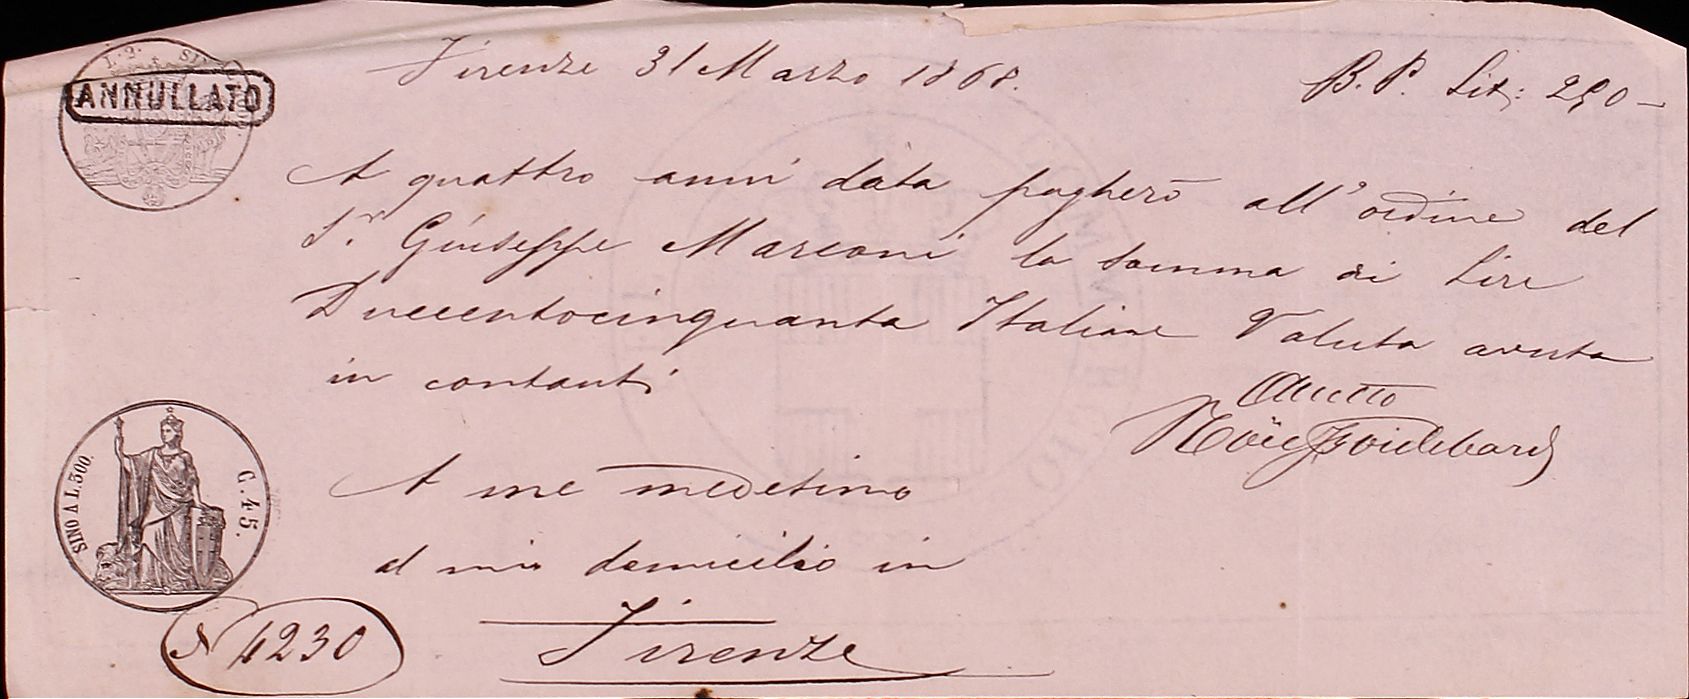 L. 2.
ANNULLATO
Firenze 31 Marzo 1868.
B. P. Lit: 250 —
A quattro anni data pagherò all'ordine del
S.r Giuseppe Marconi la somma di Lire
Duecentocinquanta Italiane Valuta avuta
in contanti
A me medesimo
al mio domicilio in
Firenze
SINO A L. 300.
C. 45.
N 4230